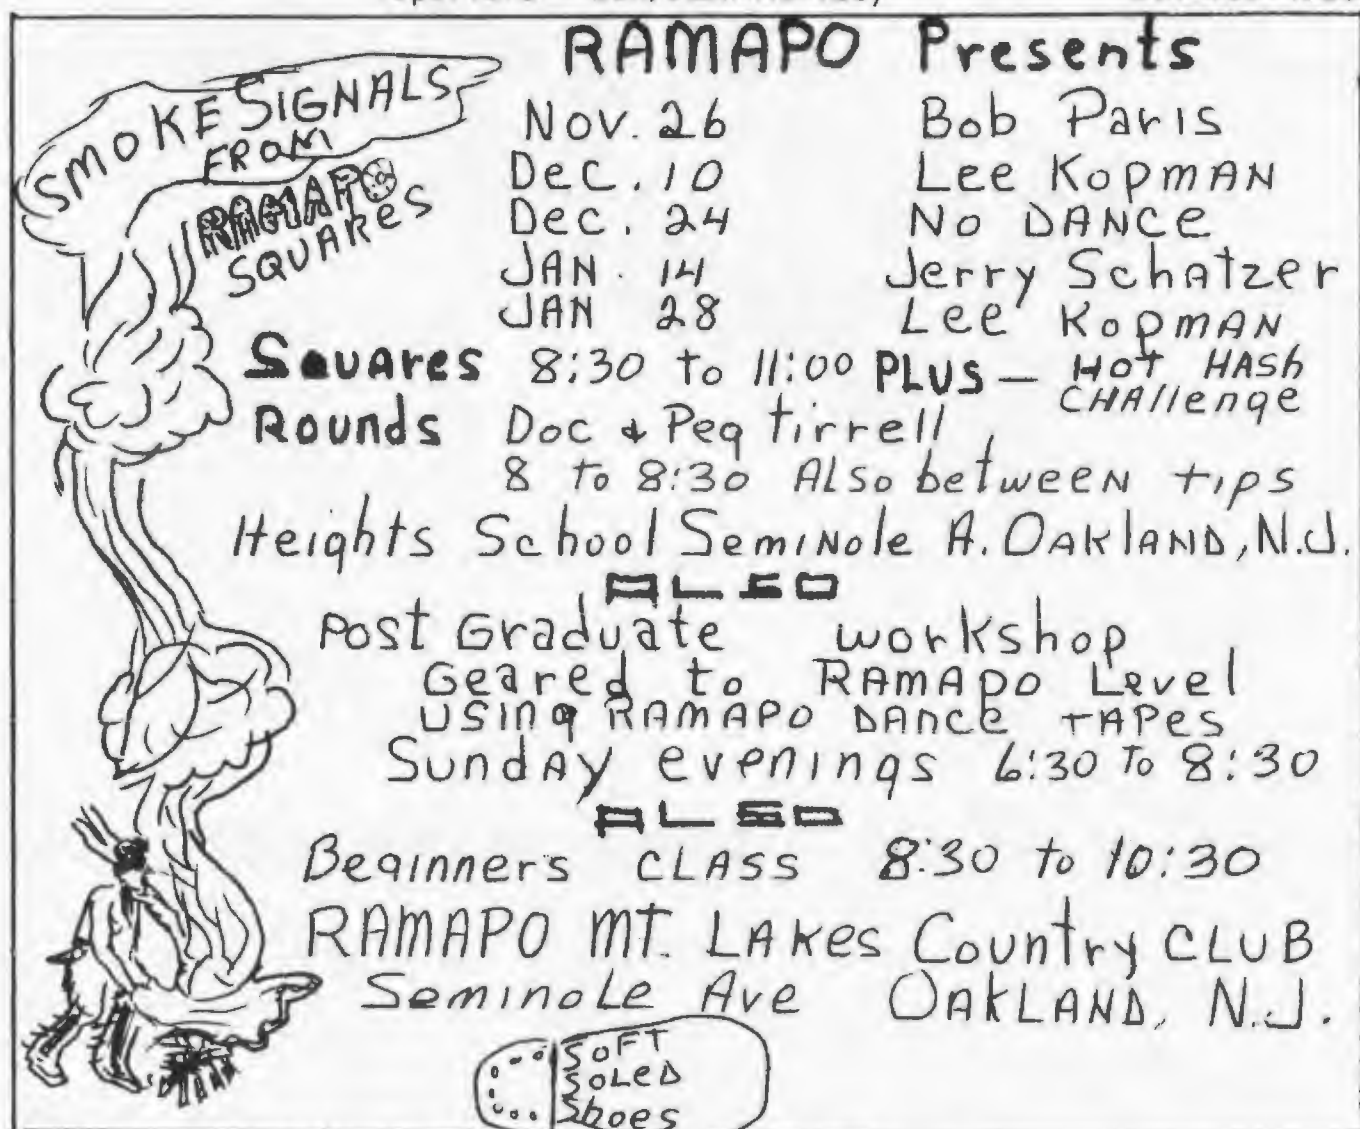 RAMAPO Presents
SMOKE SIGNALS
FROM
RAMAPO
SQUARES
Nov. 26 Bob Paris
Dec. 10 Lee Kopman
Dec. 24 No DANCE
JAN. 14 Jerry Schatzer
JAN 28 Lee Kopman
Squares 8:30 to 11:00 PLUS — Hot HASh
CHAllenge
Rounds Doc & Peg tirrell
8 To 8:30 Also between tips
Heights School Seminole A. OAKlAND, N.J.
ALSO
Post Graduate workshop
Geared to RAMAPO Level
Using RAMAPO DANCE TAPes
Sunday evenings 6:30 To 8:30
ALSO
Beginners CLASS 8:30 to 10:30
RAMAPO MT. LAKes Country CLUB
Seminole Ave OAKLAND, N.J.
SOFT
SOLeD
Shoes